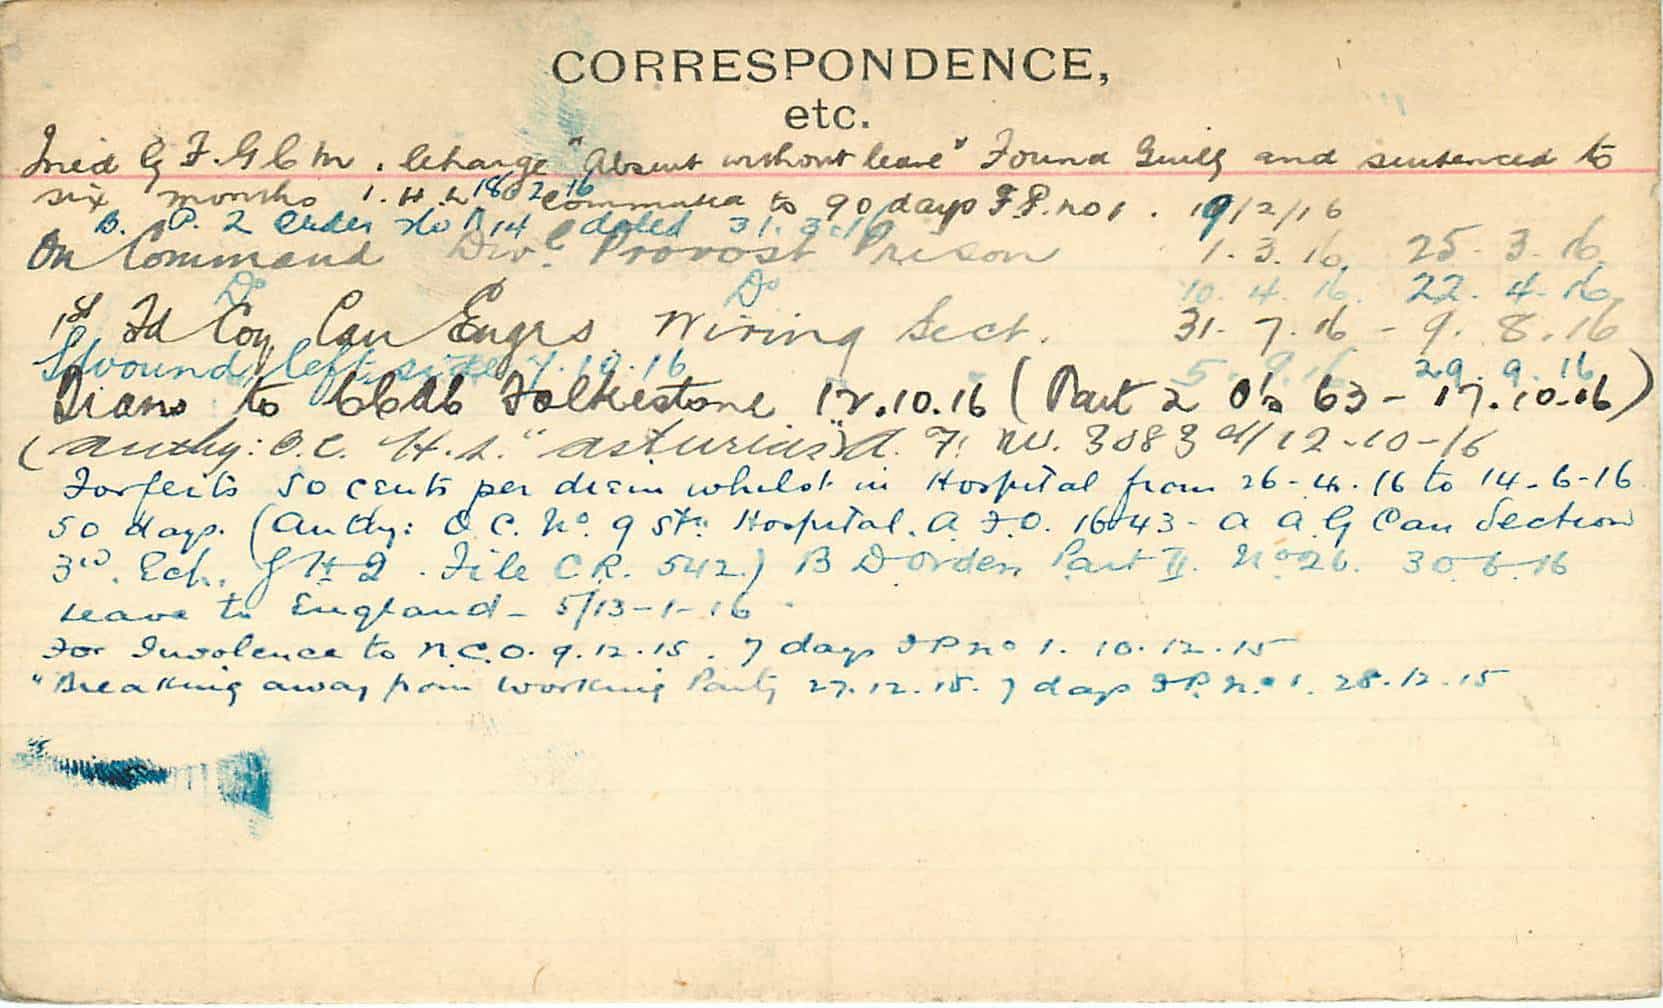 CORRESPONDENCE,
etc.
Tried by F.G.C.M. Charge "Absent without leave" Found Guilty and sentenced to
six months I.H.L 18 2 16 Commuted to 90 days F.P. no 1. 19/2/16
B. P. 2 Order No 14 dated 31.3.16
On Command Divl. Provost Prison 1.3.16. 25.3.16.
Do Do 10.4.16. 22.4.16.
1st Fd Coy Can Engrs. Wiring Sect. 31.7.16 - 9.8.16
wound left side 7.10.16 5.9.16 29.9.16
Trans to CCAC Folkestone 12.10.16 (Part 2 O's 63 - 17.10.16)
(Authy: O.C. H.S. "Asturias" A.F. W. 3083 d/12-10-16
Forfeits 50 cents per diem whilst in Hospital from 26-4-16 to 14-6-16
50 days. (Authy: O.C. No. 9 Stn. Hospital. A.F.O. 1643 - A A G Can Section
3rd. Ech. GHQ. File CR. 542.) B D Orders Part II. No 26. 30.6.16
Leave to England - 5/13-1-16
For Insolence to N.C.O. 9.12.15. 7 days FP no 1. 10.12.15
"Breaking away from working Party 27.12.15. 7 days F.P. No 1. 28.12.15